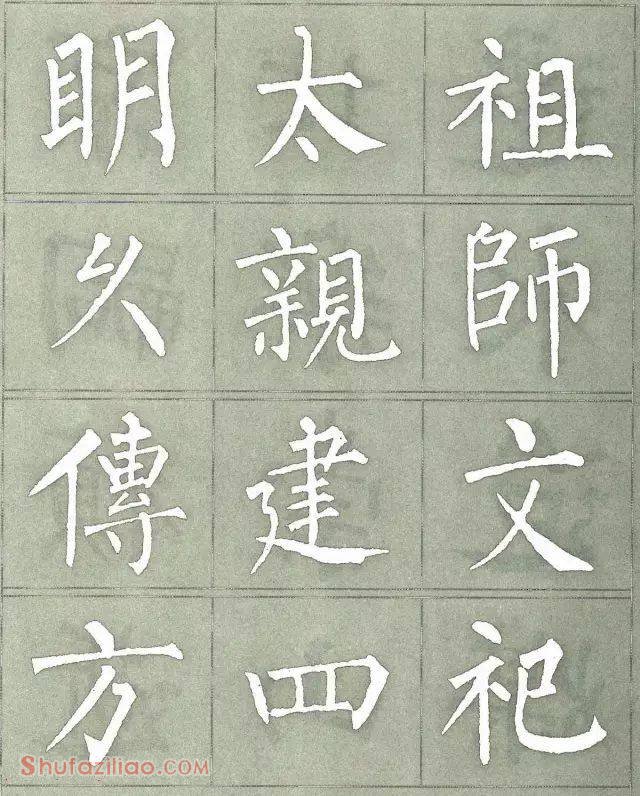 祖師文祀
太親建四
眀久傳方
Shufaziliao.COM